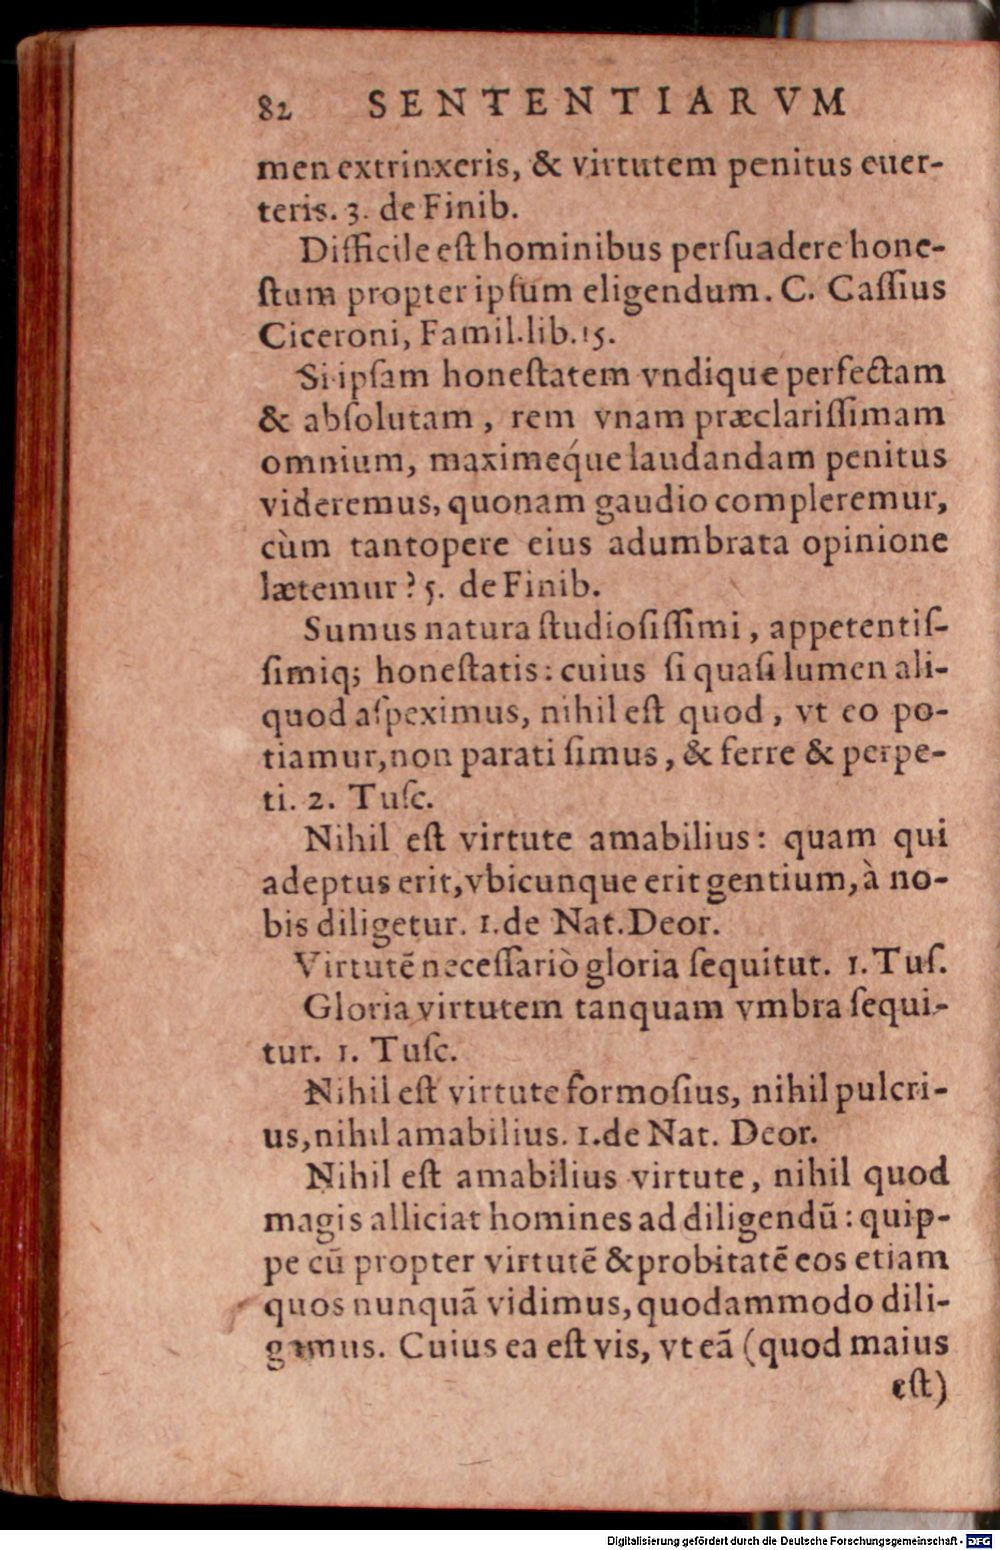 82 SENTENTIARVM
men extrinxeris, & virtutem penitus euer-
teris. 3. de Finib.
Difficile eſt hominibus perſuadere hone-
ſtum propter ipſum eligendum. C. Caſſius
Ciceroni, Famil. lib. 15.
Si ipſam honeſtatem vndique perfectam
& abſolutam, rem vnam præclariſſimam
omnium, maximeq́ue laudandam penitus
videremus, quonam gaudio compleremur,
cùm tantopere eius adumbrata opinione
lætemur? 5. de Finib.
Sumus natura ſtudioſiſſimi, appetentiſ-
ſimiq; honeſtatis: cuius ſi quaſi lumen ali-
quod aſpeximus, nihil eſt quod, vt eo po-
tiamur, non parati ſimus, & ferre & perpe-
ti. 2. Tuſc.
Nihil eſt virtute amabilius: quam qui
adeptus erit, vbicunque erit gentium, à no-
bis diligetur. 1. de Nat. Deor.
Virtutẽ neceſſariò gloria ſequitut. 1. Tuſ.
Gloria virtutem tanquam vmbra ſequi-
tur. 1. Tuſc.
Nihil eſt virtute formoſius, nihil pulcri-
us, nihil amabilius. 1. de Nat. Deor.
Nihil eſt amabilius virtute, nihil quod
magis alliciat homines ad diligendũ: quip-
pe cũ propter virtutẽ & probitatẽ eos etiam
quos nunquã vidimus, quodammodo dili-
gamus. Cuius ea eſt vis, vt eã (quod maius
eſt)
Digitalisierung gefördert durch die Deutsche Forschungsgemeinschaft - DFG